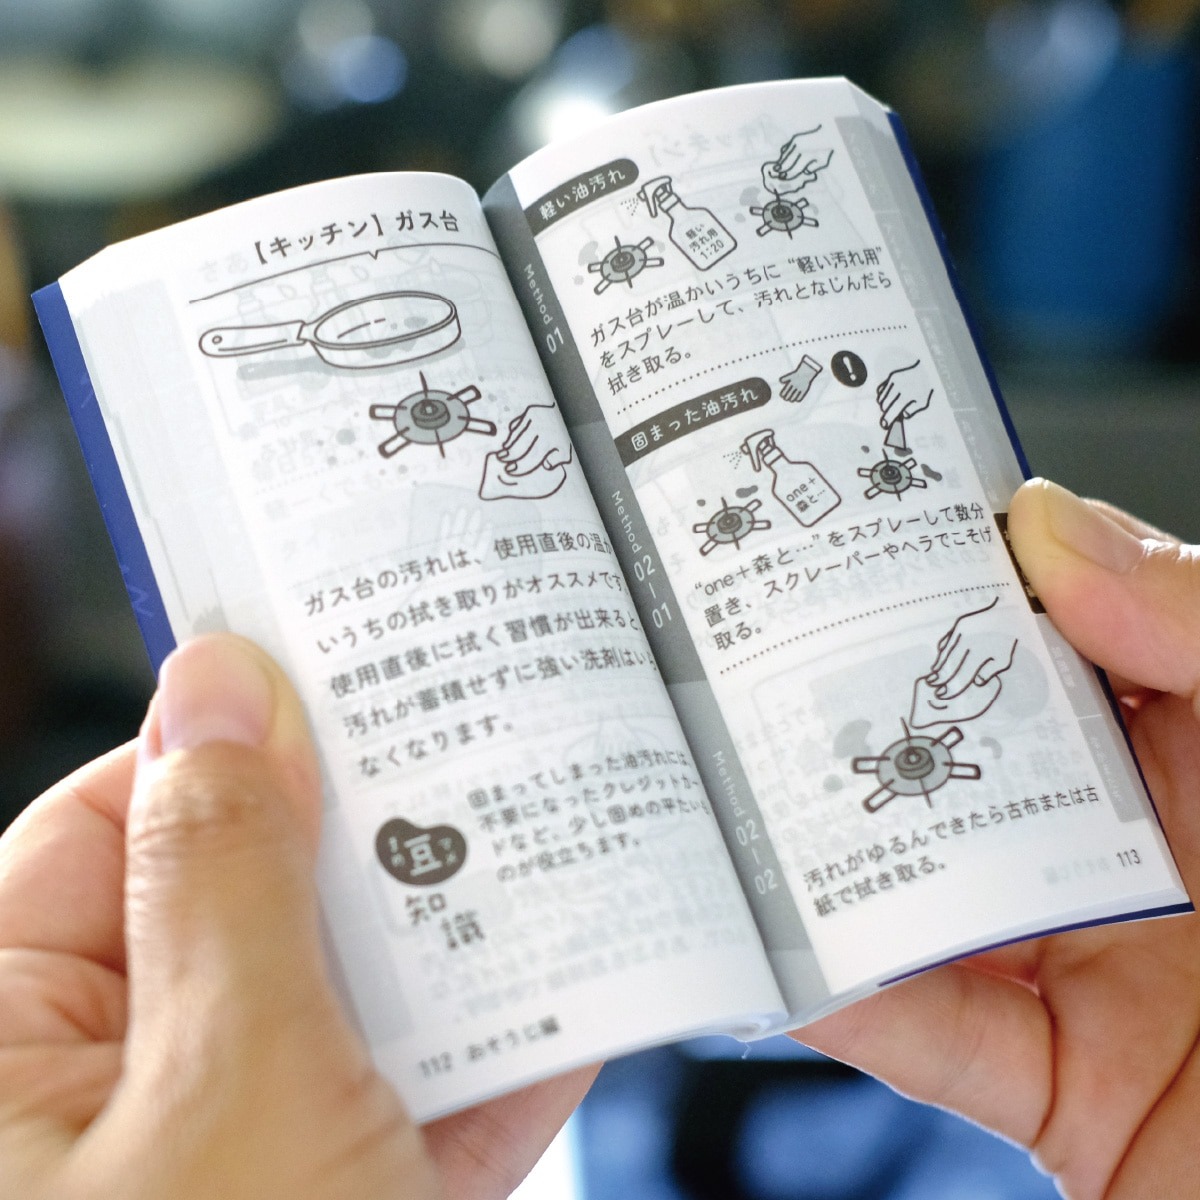 【キッチン】ガス台
ガス台の汚れは、使用直後の温か
いうちの拭き取りがオススメです
使用直後に拭く習慣が出来ると
汚れが蓄積せずに強い洗剤はいら
なくなります。
まめ
豆
マメ
知
識
固まってしまった油汚れには、
不要になったクレジットカー
ドなど、少し固めの平たいも
のが役立ちます。
112 おそうじ編
Method 01
軽い油汚れ
軽い
汚れ用
1:20
ガス台が温かいうちに“軽い汚れ用”
をスプレーして、汚れとなじんだら
拭き取る。
Method 02-01
固まった油汚れ
!
one+
森と…
“one+森と…”をスプレーして数分
置き、スクレーパーやヘラでこそげ
取る。
Method 02-02
汚れがゆるんできたら古布または古
紙で拭き取る。
113